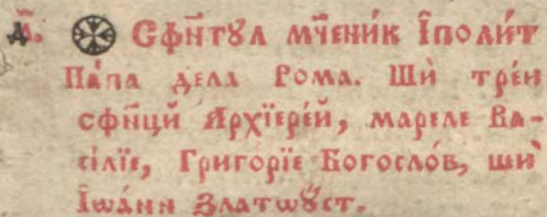 Сфн҃тꙋл мч҃ени́к І҆поли́т
Па́па дела Рома. Шѝ тре́и
сфи҃нцй Архїере́й, мареле Ва-
сі́лїе, Григо́рїе Богосло́в, шѝ
І҆ѡа́нн Златоꙋ́ст.